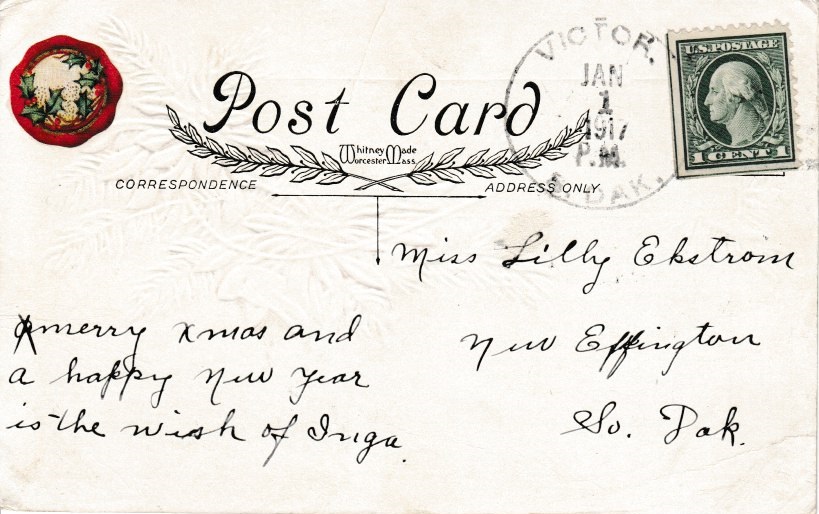 Post Card
Whitney Made
Worcester Mass.
CORRESPONDENCE
ADDRESS ONLY
VICTOR.
JAN
1
1917
P.M.
S. DAK.
U.S. POSTAGE
1 CENT 1
Miss Lilly Ekstrom
New Effington
So. Dak.
a merry xmas and
a happy New Year
is the wish of Inga.